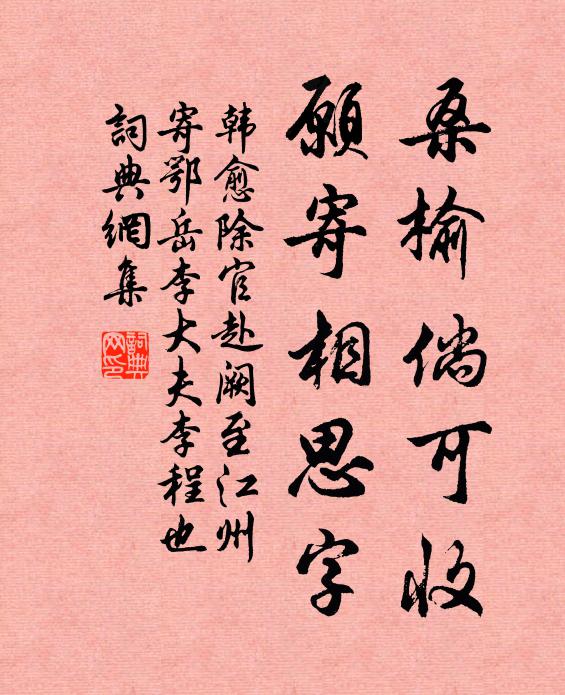 桑榆倘可收
願寄相思字
韩愈除官赴阙至江州
寄鄂岳李大夫李程也
詞典網集
詞典网印